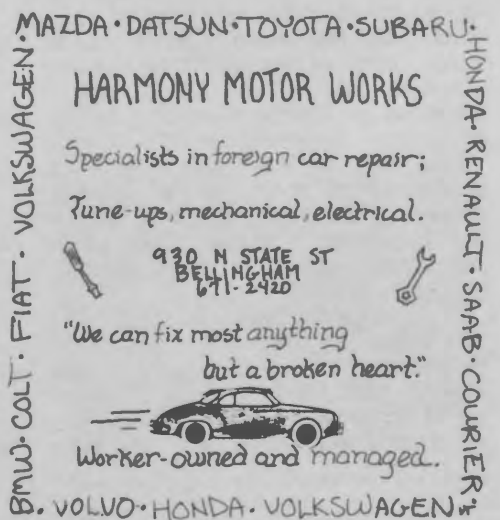 MAZDA · DATSUN · TOYOTA · SUBARU ·
HONDA · RENAULT · SAAB · COURIER ·
BMW · COLT · FIAT · VOLKSWAGEN ·
HARMONY MOTOR WORKS
Specialists in foreign car repair;
Tune-ups, mechanical, electrical.
930 N STATE ST
BELLINGHAM
671-2420
"We can fix most anything
but a broken heart."
Worker-owned and managed.
· VOLVO · HONDA · VOLKSWAGEN